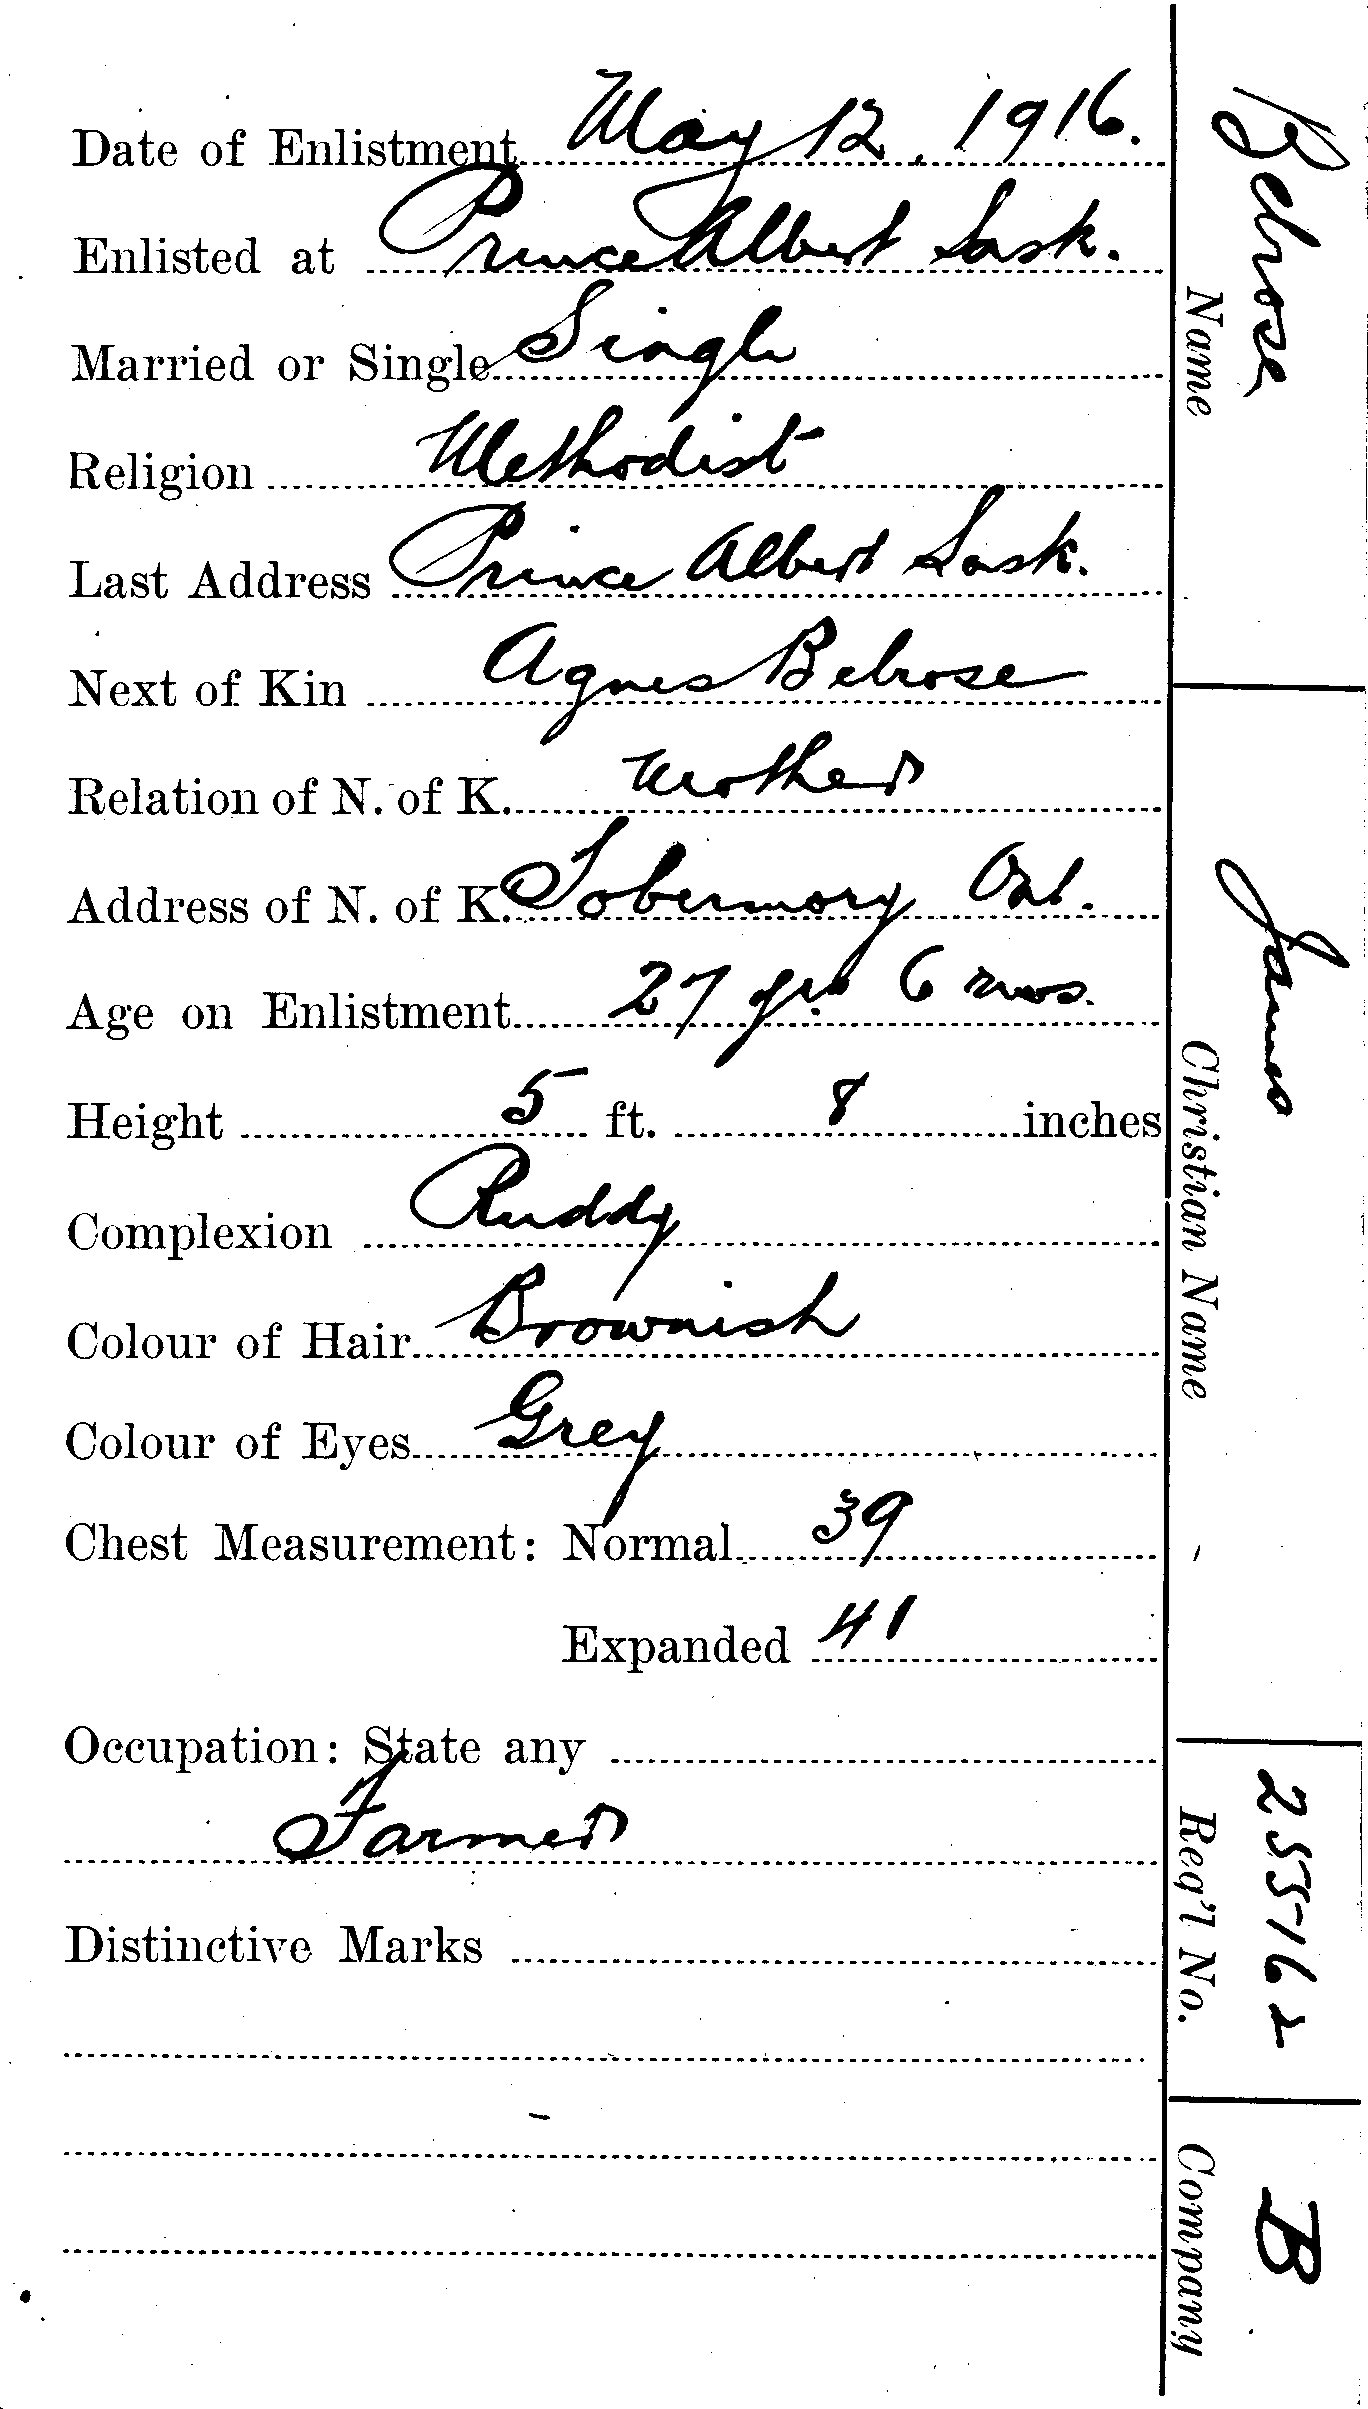 Date of Enlistment May 12, 1916.
Enlisted at Prince Albert Sask.
Married or Single Single
Religion Methodist
Last Address Prince Albert Sask.
Next of Kin Agnes Belrose
Relation of N. of K. Mother
Address of N. of K. Tobermory Ont.
Age on Enlistment 27 yrs 6 mos.
Height 5 ft. 8 inches
Complexion Ruddy
Colour of Hair Brownish
Colour of Eyes Grey
Chest Measurement: Normal 39
Expanded 41
Occupation: State any
Farmer
Distinctive Marks
Belrose
Name
James
Christian Name
255162
Req'l No.
B
Company